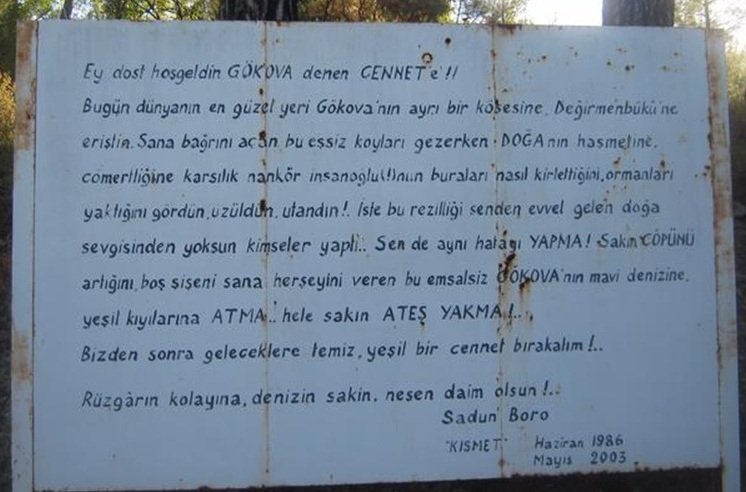 Ey dost hoşgeldin GÖKOVA denen CENNET'e!!
Bugün dünyanın en güzel yeri Gökova'nın ayrı bir köşesine, Değirmenbükü'ne
eriştin. Sana bağrını açan bu eşsiz koyları gezerken DOĞA'nın haşmetine,
cömertliğine karşılık nankör insanoğlu(!)nun buraları nasıl kirlettiğini, ormanları
yaktığını gördün, üzüldün, utandın!. İşte bu rezilliği senden evvel gelen doğa
sevgisinden yoksun kimseler yaptı.. Sen de aynı hatayı YAPMA! Sakın ÇÖPÜNÜ
artığını, boş şişeni sana herşeyini veren bu emsalsiz GÖKOVA'nın mavi denizine,
yeşil kıyılarına ATMA.. hele sakın ATEŞ YAKMA!..
Bizden sonra geleceklere temiz, yeşil bir cennet bırakalım!..
Rüzgârın kolayına, denizin sakin, neşen daim olsun!..
Sadun Boro
"KISMET" Haziran 1986
Mayıs 2003